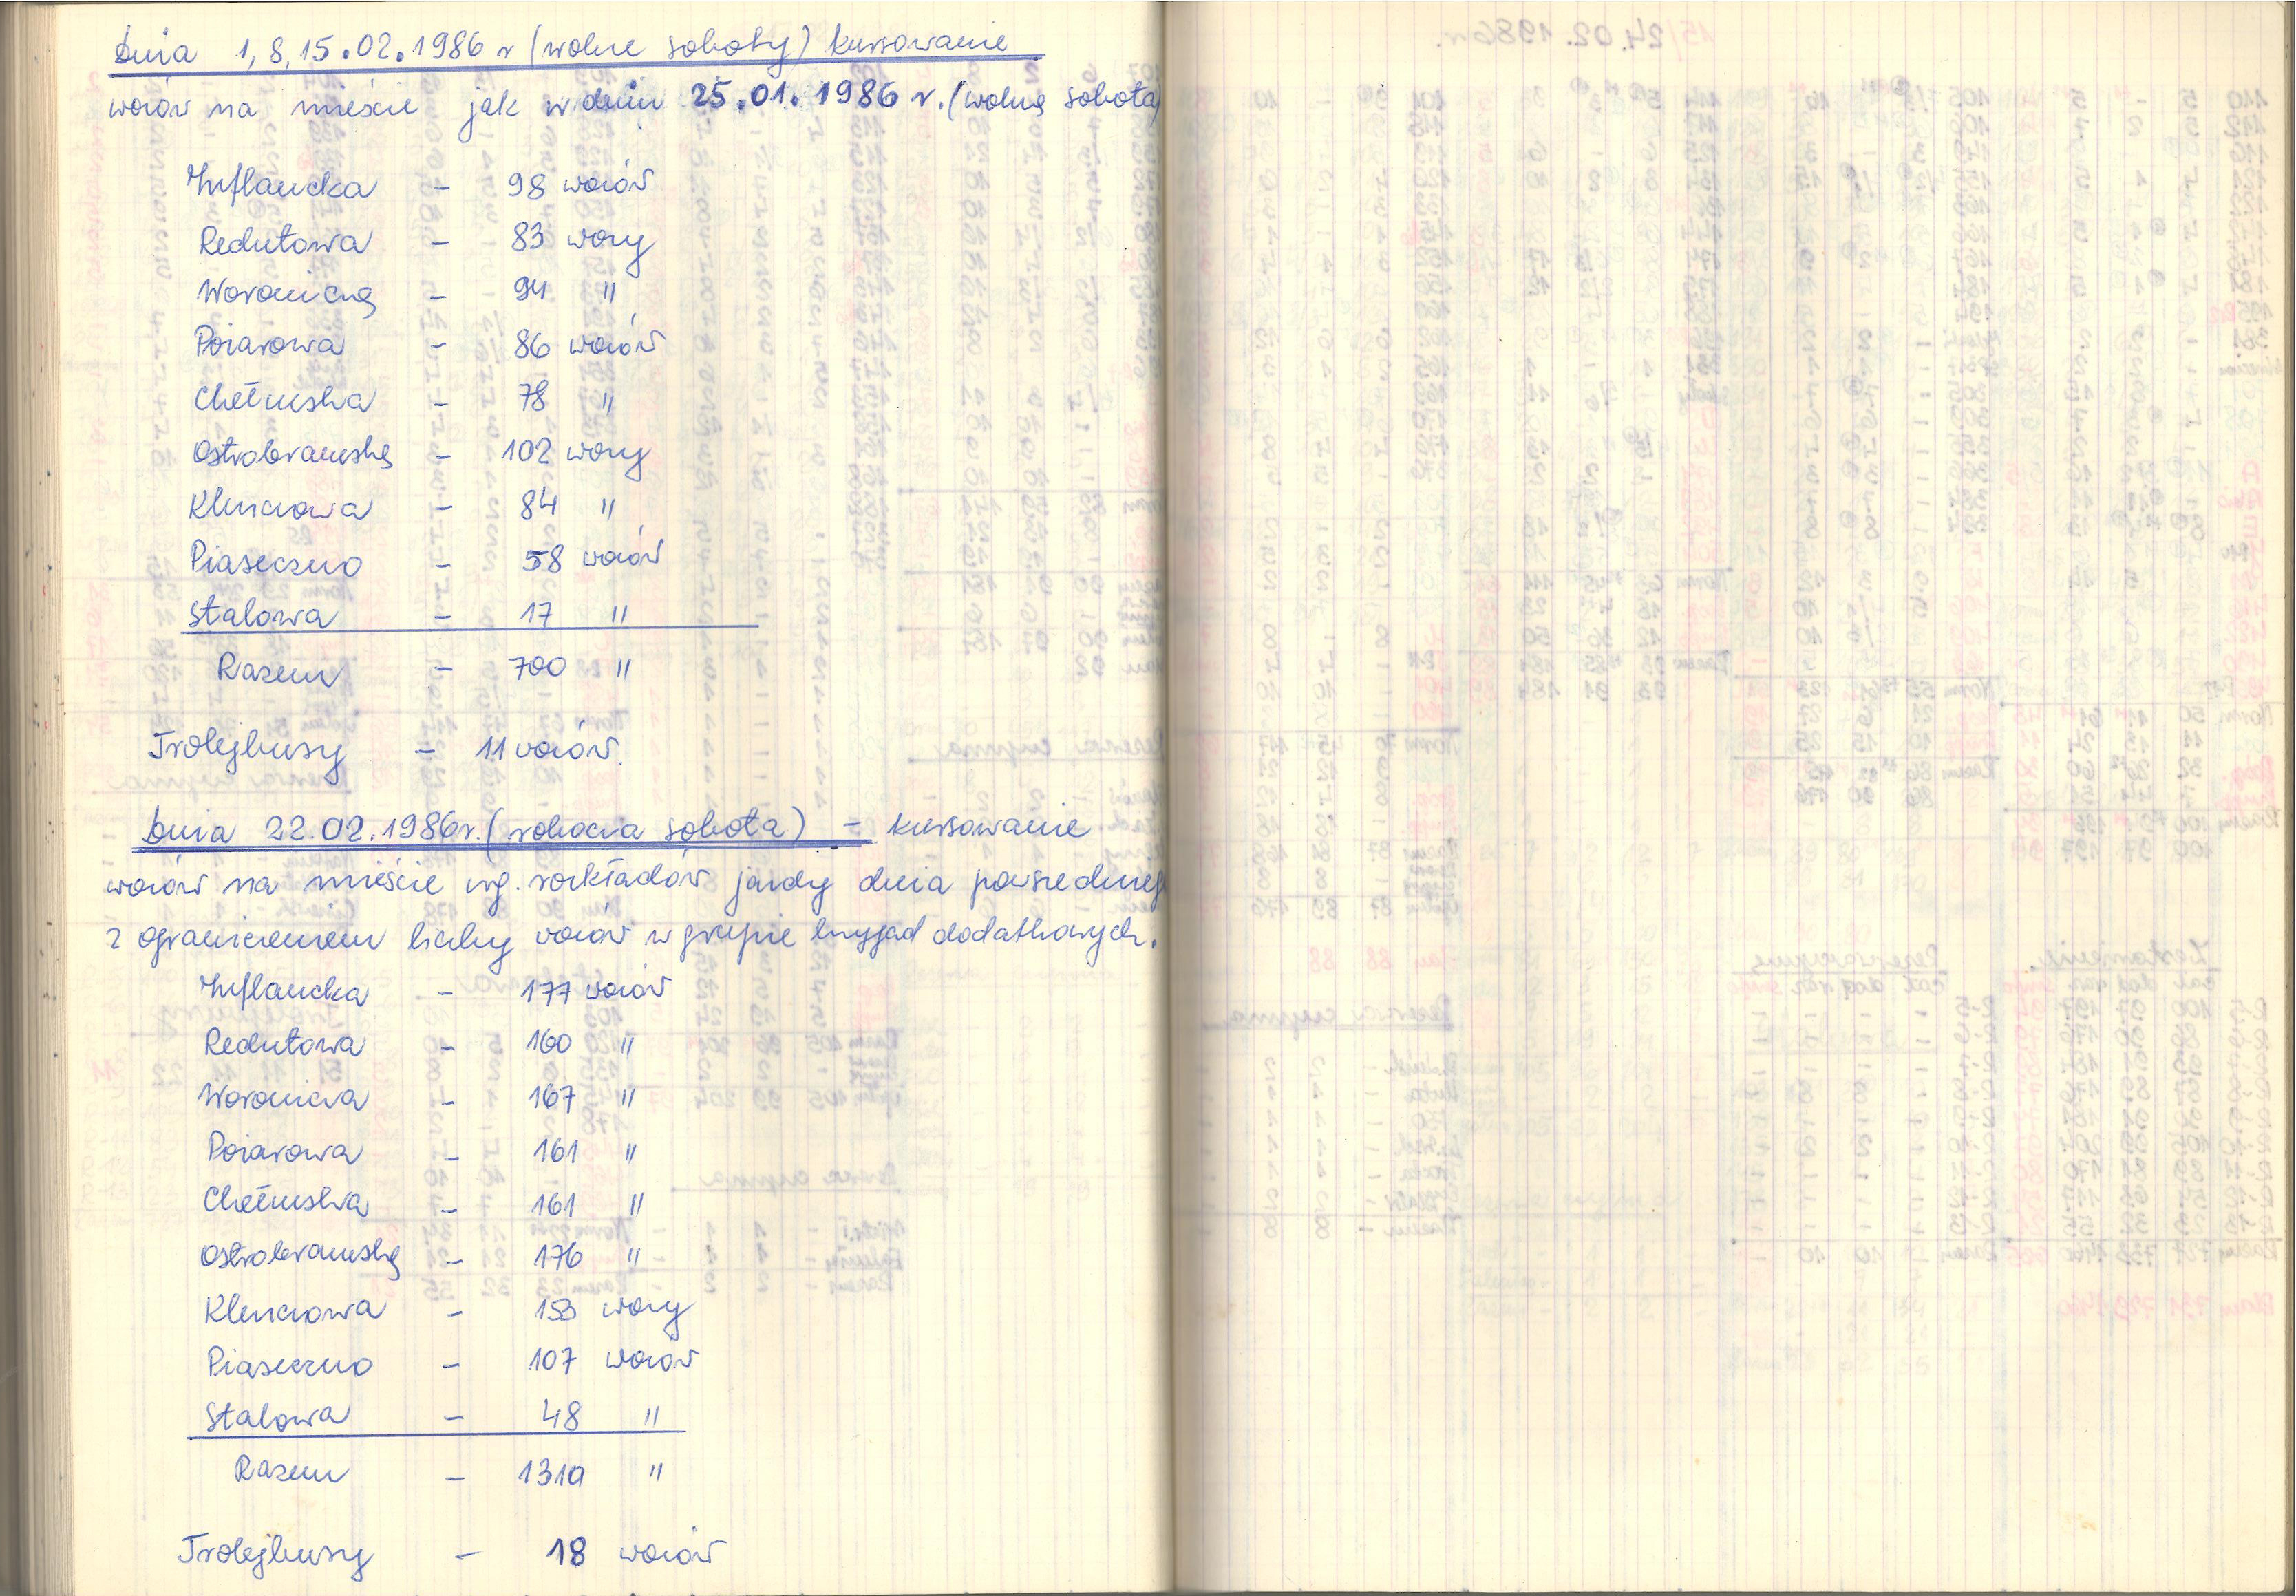 Dnia 1, 8, 15.02.1986 r (wolne soboty) kursowanie
wozów na mieście jak w dniu 25.01.1986 r. (wolna sobota)
Inflancka - 98 wozów
Redutowa - 83 wozy
Woronicza - 94 "
Pożarowa - 86 wozów
Chełmska - 78 "
Ostrobramska - 102 wozy
Kleszczowa - 84 "
Piaseczno - 58 wozów
Stalowa - 17 "
Razem - 700 "
Trolejbusy - 11 wozów.
Dnia 22.02.1986r. (robocza sobota) - kursowanie
wozów na mieście wg. rozkładów jazdy dnia powszedniego
z ograniczeniem liczby wozów w grupie brygad dodatkowych.
Inflancka - 177 wozów
Redutowa - 160 "
Woronicza - 167 "
Pożarowa - 161 "
Chełmska - 161 "
Ostrobramska - 176 "
Kleszczowa - 153 wozy
Piaseczno - 107 wozów
Stalowa - 48 "
Razem - 1310 "
Trolejbusy - 18 wozów